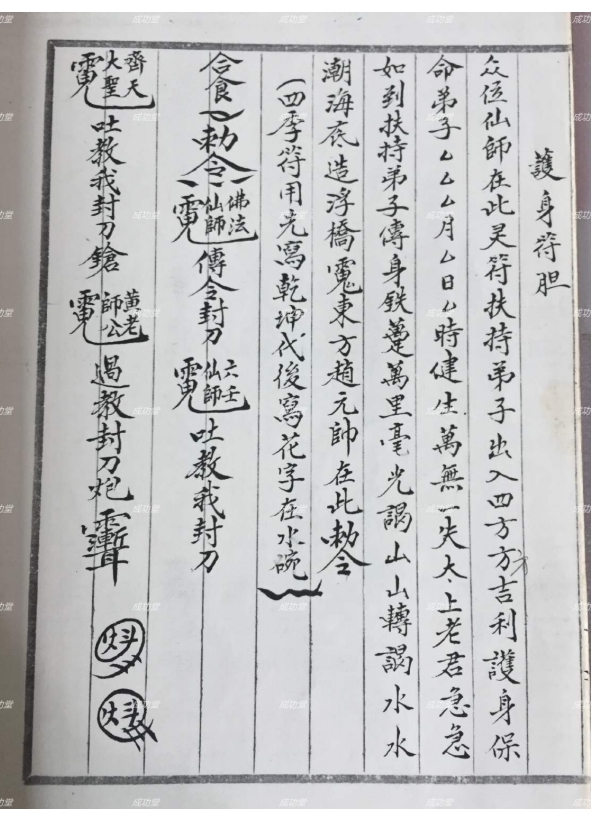 護身符胆
众位仙師在此灵符扶持弟子出入四方方吉利護身保
命弟子厶厶厶月厶日厶時健生萬無一失太上老君急急
如到扶持弟子傳身鉄蓬萬里毫光謁山山轉謁水水
潮海底造浮橋靇東方趙元帥在此勅令
(四季符用先寫乾坤代後寫花字在水碗
合食勅令佛法仙師傳令封刀六壬仙師吐教我封刀
齊天大聖吐教我封刀鎗黃老師公過教封刀炮
成功堂